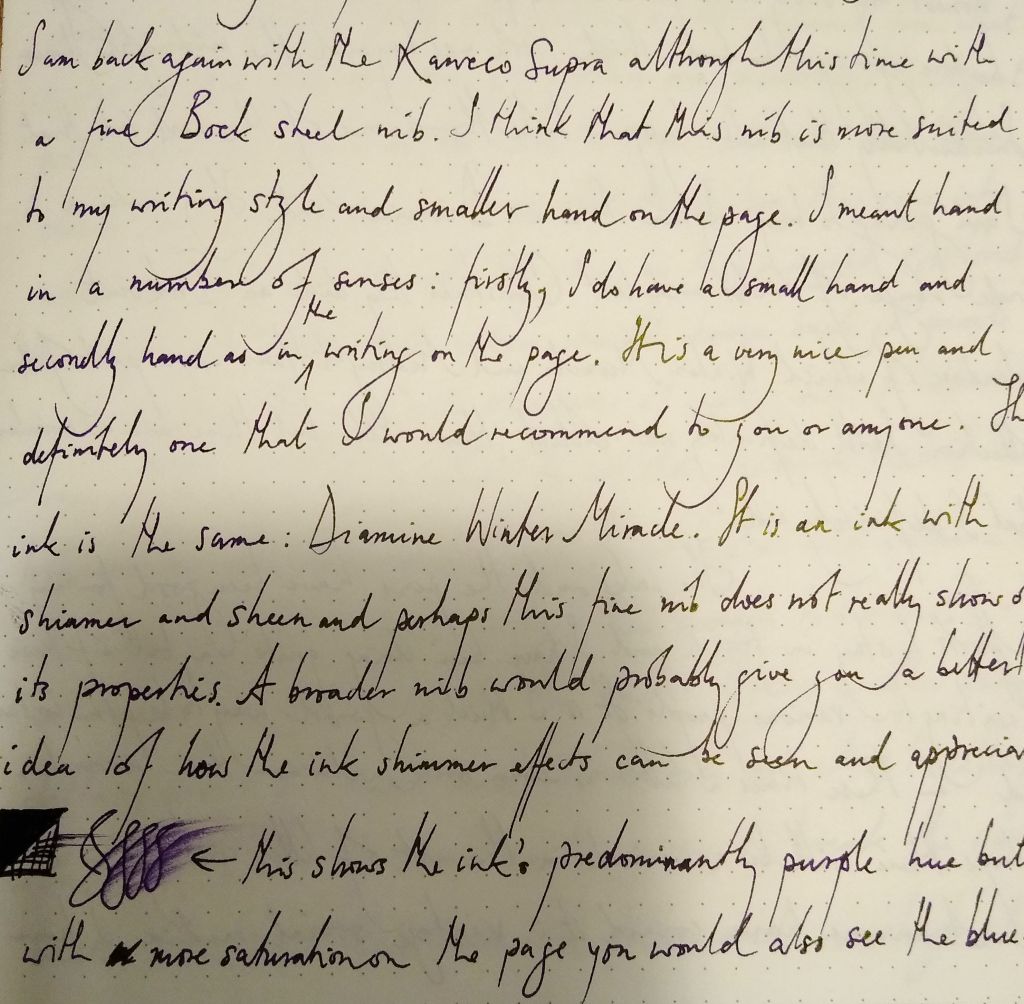 I am back again with the Kaweco Supra although this time with
a fine Bock steel nib. I think that this nib is more suited
to my writing style and smaller hand on the page. I meant hand
in a number of senses: firstly, I do have a small hand and
secondly hand as in the writing on the page. It is a very nice pen and
definitely one that I would recommend to you or anyone. Th
ink is the same: Diamine Winter Miracle. It is an ink with
shimmer and sheen and perhaps this fine nib does not really shows o
its properties. A broader nib would probably give you a better
idea of how the ink shimmer effects can be seen and apprecia
← this shows the ink's predominantly purple hue but
with more saturation on the page you would also see the blue